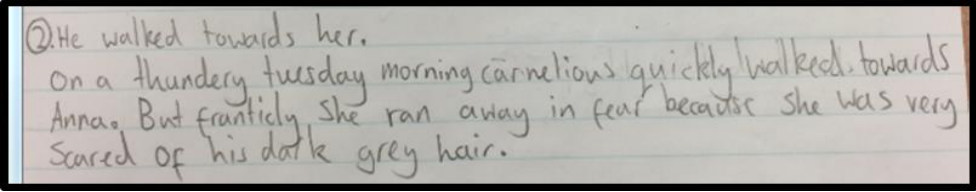 ②.He walked towards her.
On a thundery tuesday morning carnelious quickly walked towards
Anna. But franticly She ran away in fear because She was very
Scared of his dark grey hair.